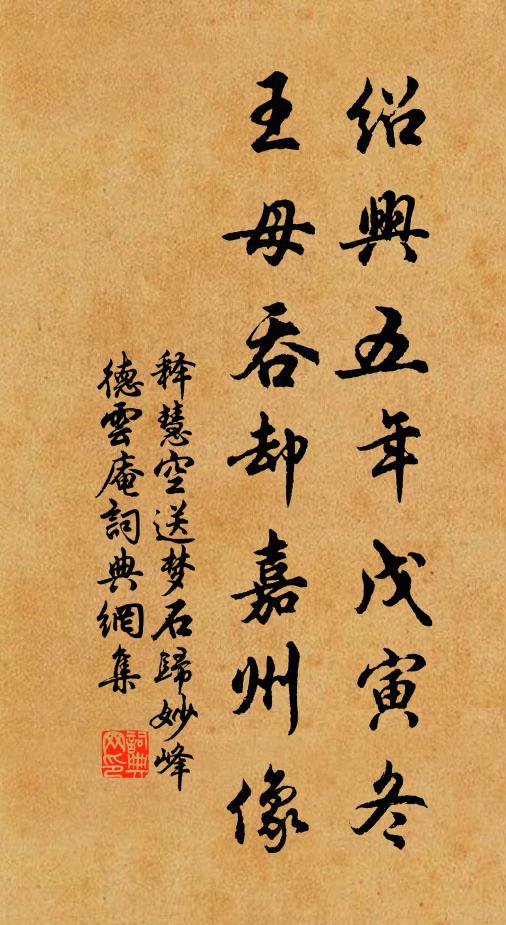 绍興五年戊寅冬
王母吞却嘉州像
释慧空送梦石歸妙峰
德雲庵詞典網集
詞典网印